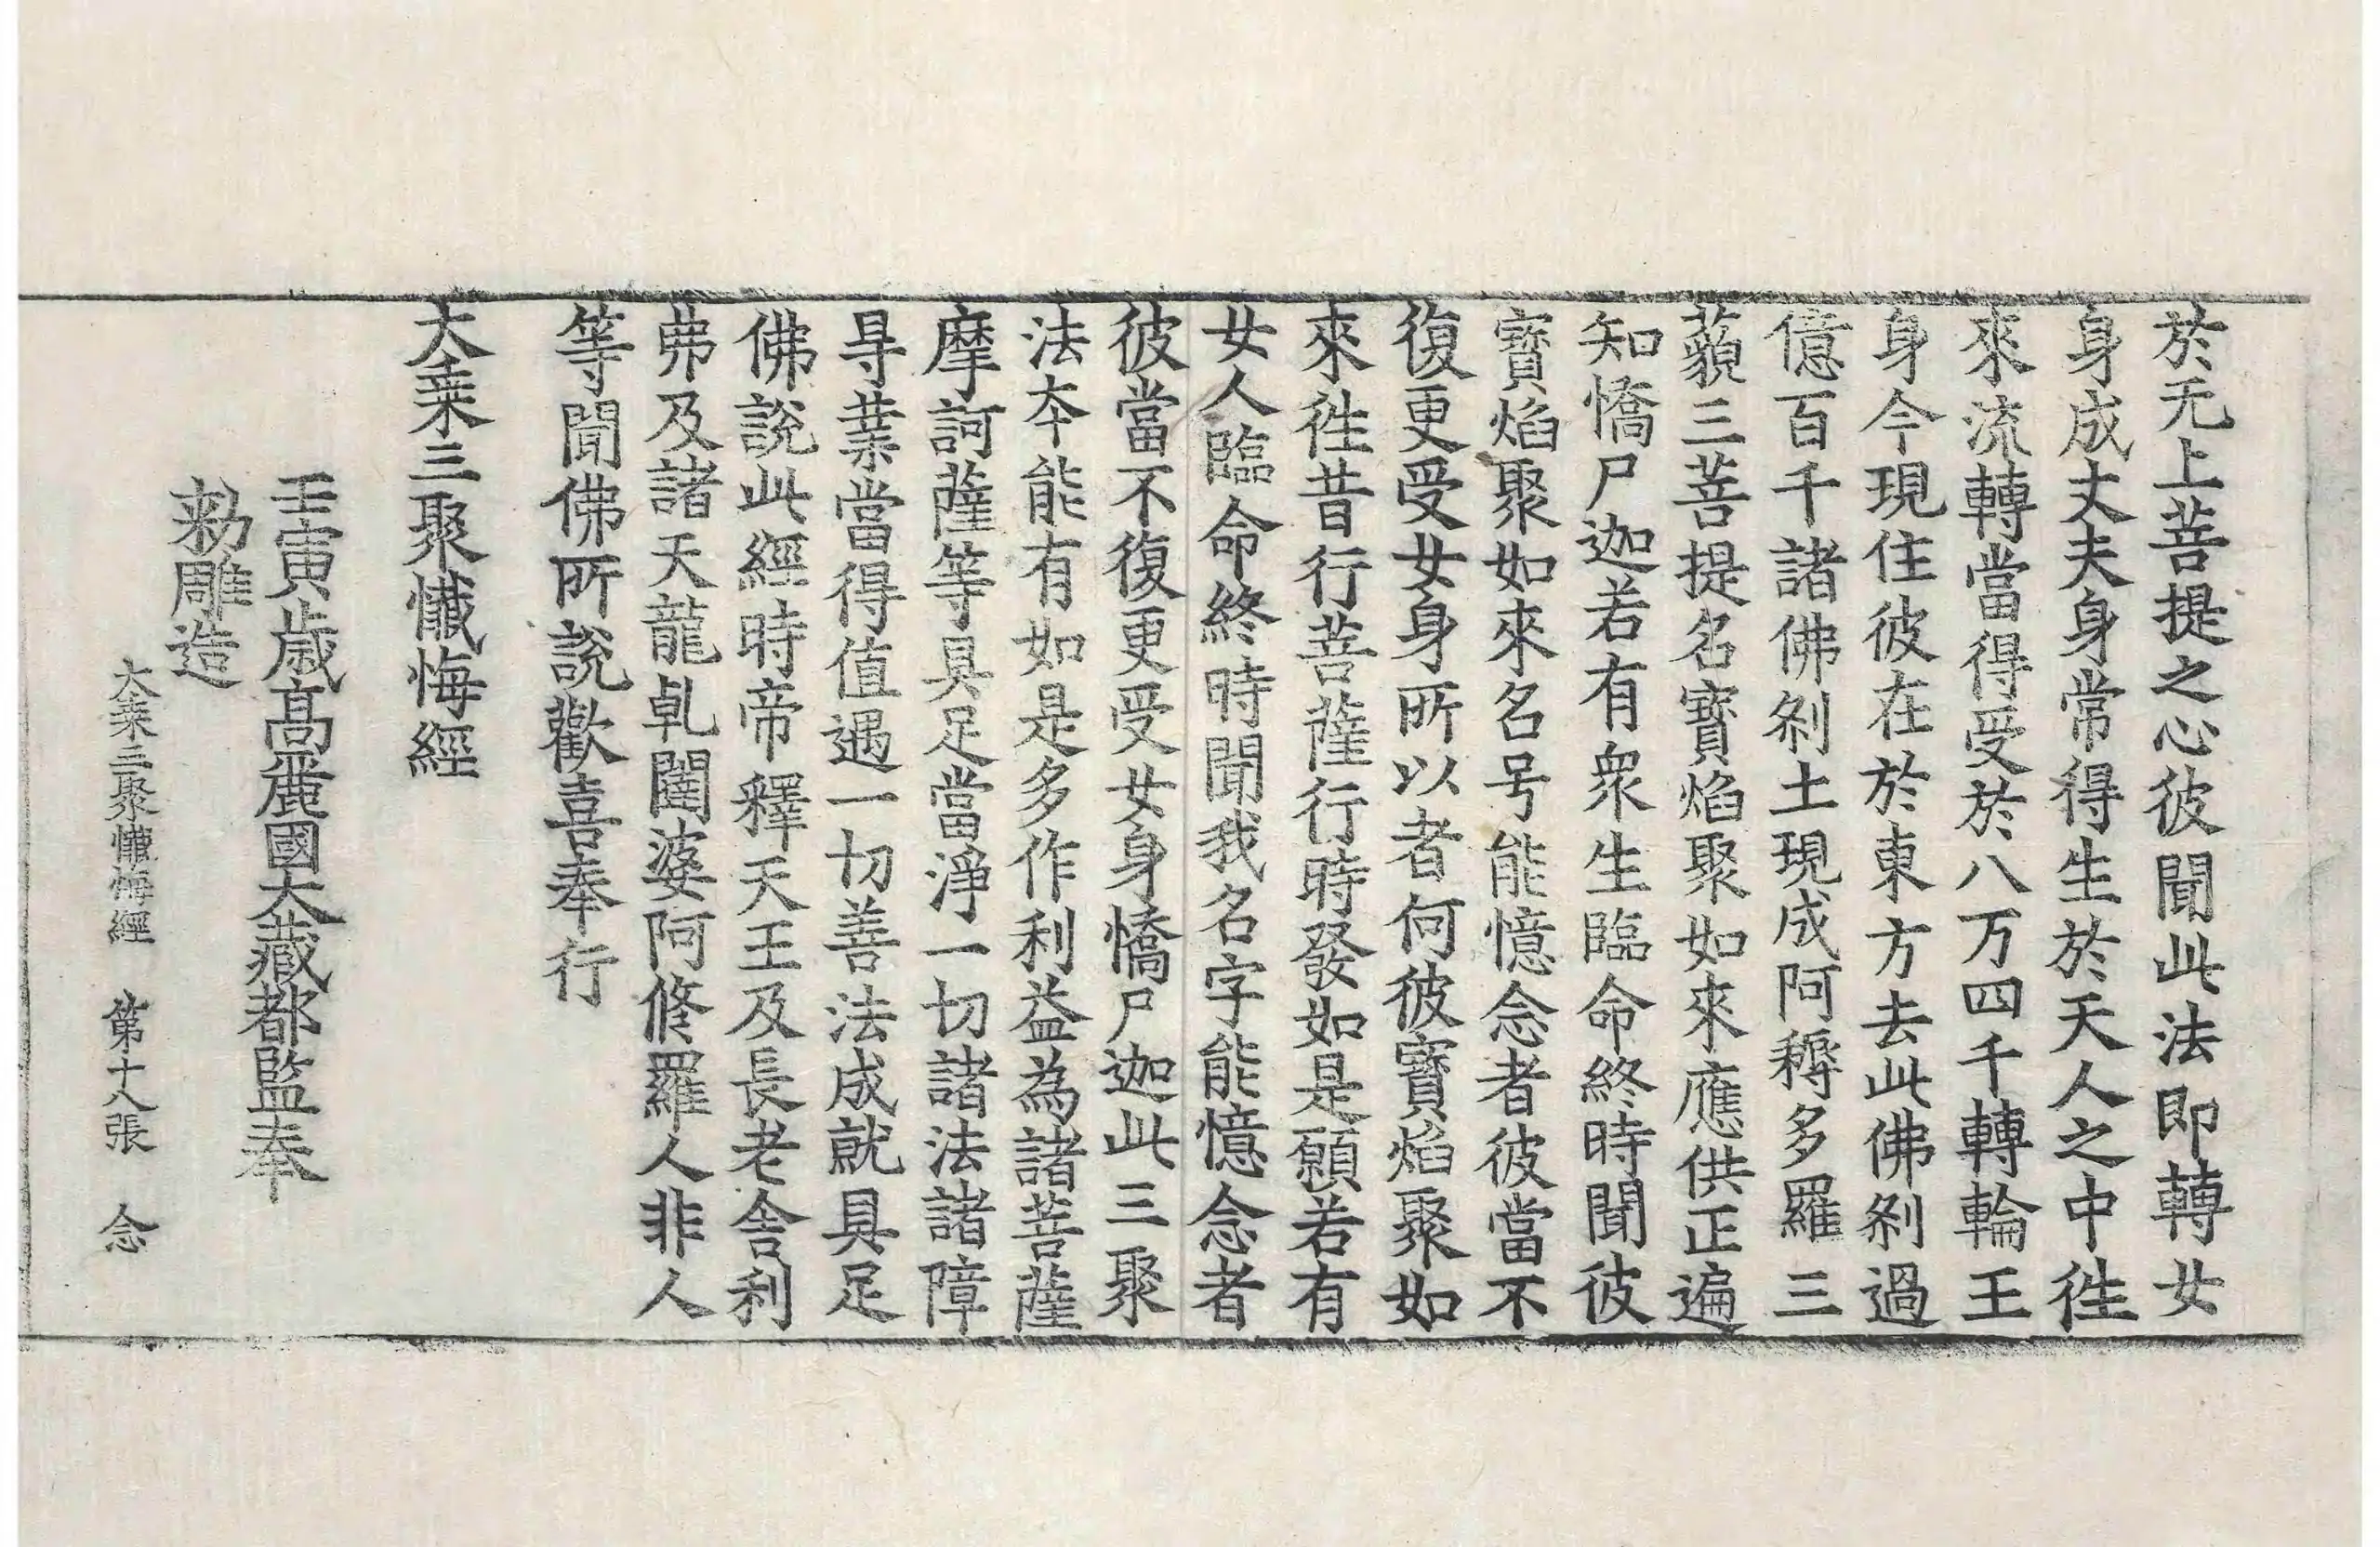 於无上菩提之心彼聞此法即轉女
身成丈夫身常得生於天人之中徃
來流轉當得受於八万四千轉輪王
身今現住彼在於東方去此佛刹過
億百千諸佛刹土現成阿耨多羅三
藐三菩提名寶焰聚如來應供正遍
知憍尸迦若有衆生臨命終時聞彼
寶焰聚如來名号能憶念者彼當不
復更受女身所以者何彼寶焰聚如
來徃昔行菩薩行時發如是願若有
女人臨命終時聞我名字能憶念者
彼當不復更受女身憍尸迦此三聚
法夲能有如是多作利益為諸菩薩
摩訶薩等具足當淨一切諸法諸障
㝵業當得值遇一切善法成就具足
佛說此經時帝釋天王及長老舎利
弗及諸天龍乹闥婆阿修羅人非人
等聞佛所說歡喜奉行
大乗三聚懺悔經
壬寅歳高麗國大藏都監奉
勑雕造
大乗三聚懺悔經 第十八張 念